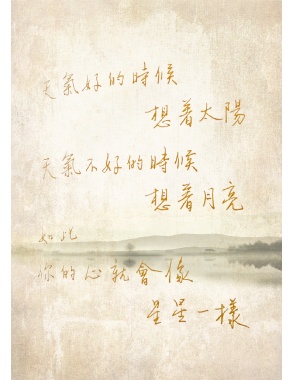 天氣好的時候
想着太陽
天氣不好的時候
想着月亮
如此
你的心就會像
星星一樣